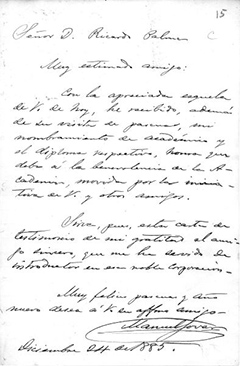 15
Señor D. Ricardo Palma
Muy estimado amigo:
Con la apreciada esquela
de V. de hoy, he recibido, además
de su visita de pascuas, mi
nombramiento de académico y
el diploma respectivo, honra que
debo á la benevolencia de la A-
cademia, movida por la inicia-
tiva de V. y otros amigos.
Sirva, pues, esta carta de
testimonio de mi gratitud al ami-
go sincero, que me ha servido de
introductor en esa noble Corporacion.
Muy felices pascuas y año
nuevo desea á V. su affmo amigo
Manuel Tovar
Diciembre 24 de 1885.